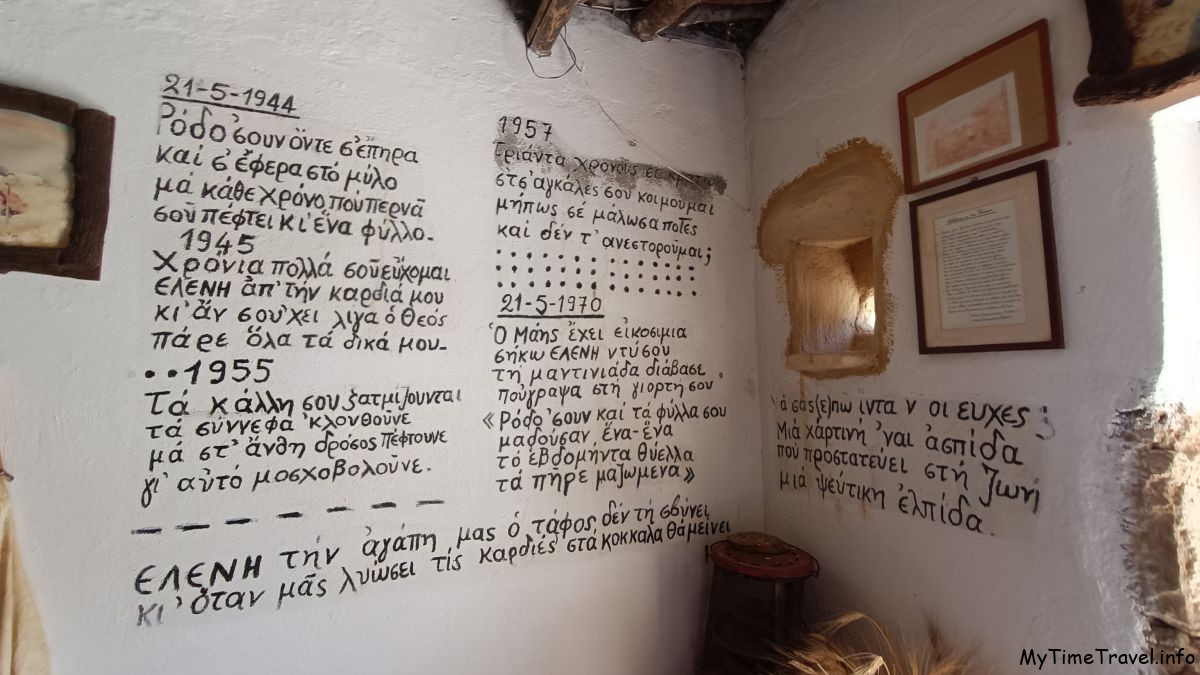 21-5-1944
Ρόδο 'σουν ὄντε σ'ἐπῆρα
καί σ'ἔφερα στό μύλο
μά κάθε χρόνο πού περνᾶ
σοῦ πέφτει κι'ἕνα φύλλο.
1945
Χρόνια πολλά σοῦ εὔχομαι
ΕΛΕΝΗ ἀπ'τήν καρδιά μου
κι'ἄν σου'χει λιγα ὁ Θεός
πάρε ὅλα τά δικά μου.
••1955
Τά κάλλη σου ξατμίζουνται
τά σύννεφα 'κλουθοῦνε
μά στ'ἄνθη δρόσος πέφτουνε
γι'αὐτό μοσχοβολοῦνε.
1957
Τριάντα χρόνους σέ
στς'αγκάλες σου κοιμοῦμαι
μήπως σέ μάλωσα ποτές
καί δέν τ'ανεστοροῦμαι;
21-5-1970
Ὁ Μάης ἔχει εἰκοσιμια
σήκω ΕΛΕΝΗ ντύσου
τή μαντινιάδα διάβασε
πούγραψα στή γιορτή σου
«Ρόδο 'σουν καί τά φύλλα σου
μαδοῦσαν ἕνα-ἕνα
τό ἑβδομήντα θύελλα
τά πῆρε μαζωμένα»
ΕΛΕΝΗ τήν ἀγάπη μας ὁ τάφος δέν τή σβύνει
κι'ὅταν μᾶς λυώσει τίς καρδιές στά κόκκαλα θά μείνει
νά σας(ε)πω ίντα ν οι ευχες;
Μιά χάρτινή 'ναι ἀσπίδα
πού προστατεύει στή ζωή
μιά ψεύτικη ἐλπίδα.
MyTimeTravel.info